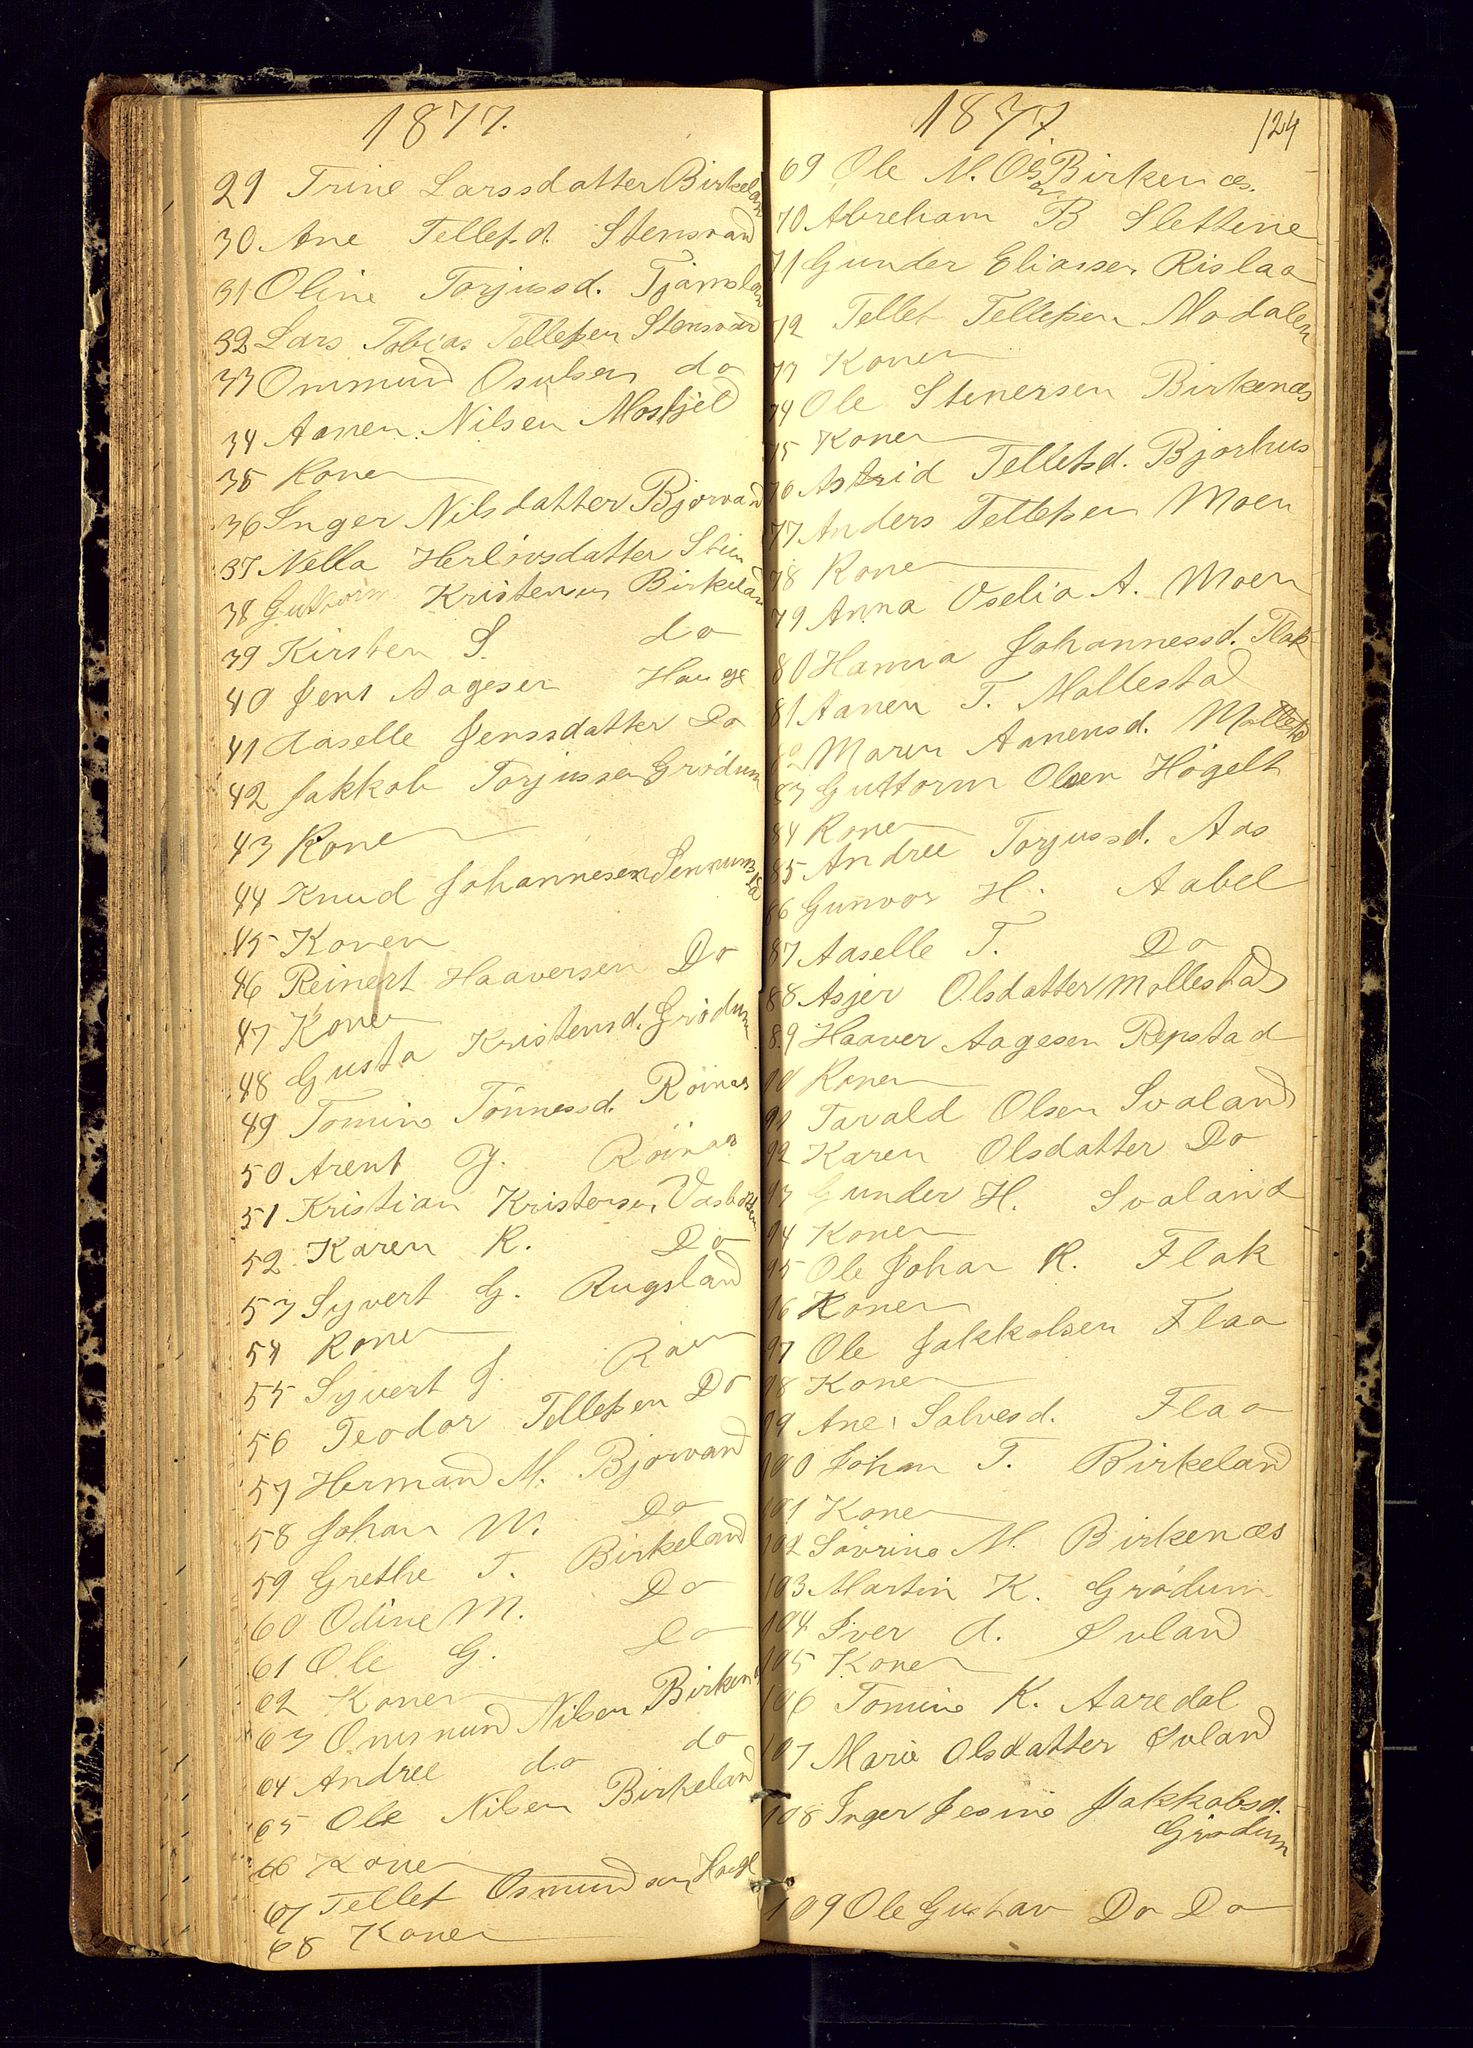 1877.
29 Trine Larssdatter Birkeland
30 Ane Tellefsd. Stensvand
31 Oline Torjussd. Tjamsland
32 Lars Tobias Tellefsen Stensvand
33 Ommund Osulsen do
34 Aanen Nilsen Mosfjeld
35 Konen
36 Inger Nilsdatter Bjorvand
37 Nella Herlovsdatter Stien
38 Guttorm Kristensen Birkeland
39 Kirsten S. do
40 Jens Aagesen Hauge
41 Aaselle Jenssdatter Do
42 Jakkob Torjussen Grödum
43 Kone
44 Knud Johannesen Senum
45 Konen
46 Reinert Haaversen Do
47 Konen
48 Gusta Kristensd. Grödum
49 Tomine Tönnessd. Röinas
50 Arent J. Röinas
51 Kristian Kristensen
52 Karen K. Do
53 Syvert G. Rugsland
54 Konen
55 Syvert J.
56 Teodor Tellefsen Do
57 Herman M. Bjorvand
58 Johan M. Do
59 Grethe T. Birkeland
60 Odine M. Do
61 Ole G. Do
62 Konen
63 Ommund Nilsen Birkenes
64 Andree do do
65 Ole Nilsen Birkeland
66 Konen
67 Tellef Osmundsen
68 Konen
1877.
124
69 Ole N. Birkenæs.
70 Abreham B Slettene
71 Gunder Eliassen Rislaa
72 Tellef Tellefsen Modalen
73 Konen
74 Ole Stenersen Birkenæs
75 Konen
76 Astrid Tellefsd. Bjorhus
77 Anders Tellefsen Moen
78 Konen
79 Anna Oselia A. Moen
80 Hanna Johannessd. Flak
81 Aanen T. Mollestad
82 Maren Aanensd. Mollestad
83 Guttorm Olsen Högelt
84 Konen
85 Andree Torjussd. Aas
86 Gunvor H. Aabel
87 Aaselle T. Do
88 Asjer Olsdatter Mollestad
89 Haaver Aagesen Repstad
90 Konen
91 Tarald Olsen Svaland
92 Karen Olsdatter Do
93 Gunder H. Svaland
94 Konen
95 Ole Johan R. Flak
96 Konen
97 Ole Jakkobsen Flaa
98 Konen
99 Ane Salvesd. Flaa
100 Johan T. Birkeland
101 Konen
102 Sövrine N. Birkenæs
103 Martin K. Grödum
104 Iver A. Ivland
105 Konen
106 Tomine K. Aaredal
107 Marie Olsdatter Ivland
108 Inger Jesine Jakkobsd.
Grödum
109 Ole Gustav Do Do